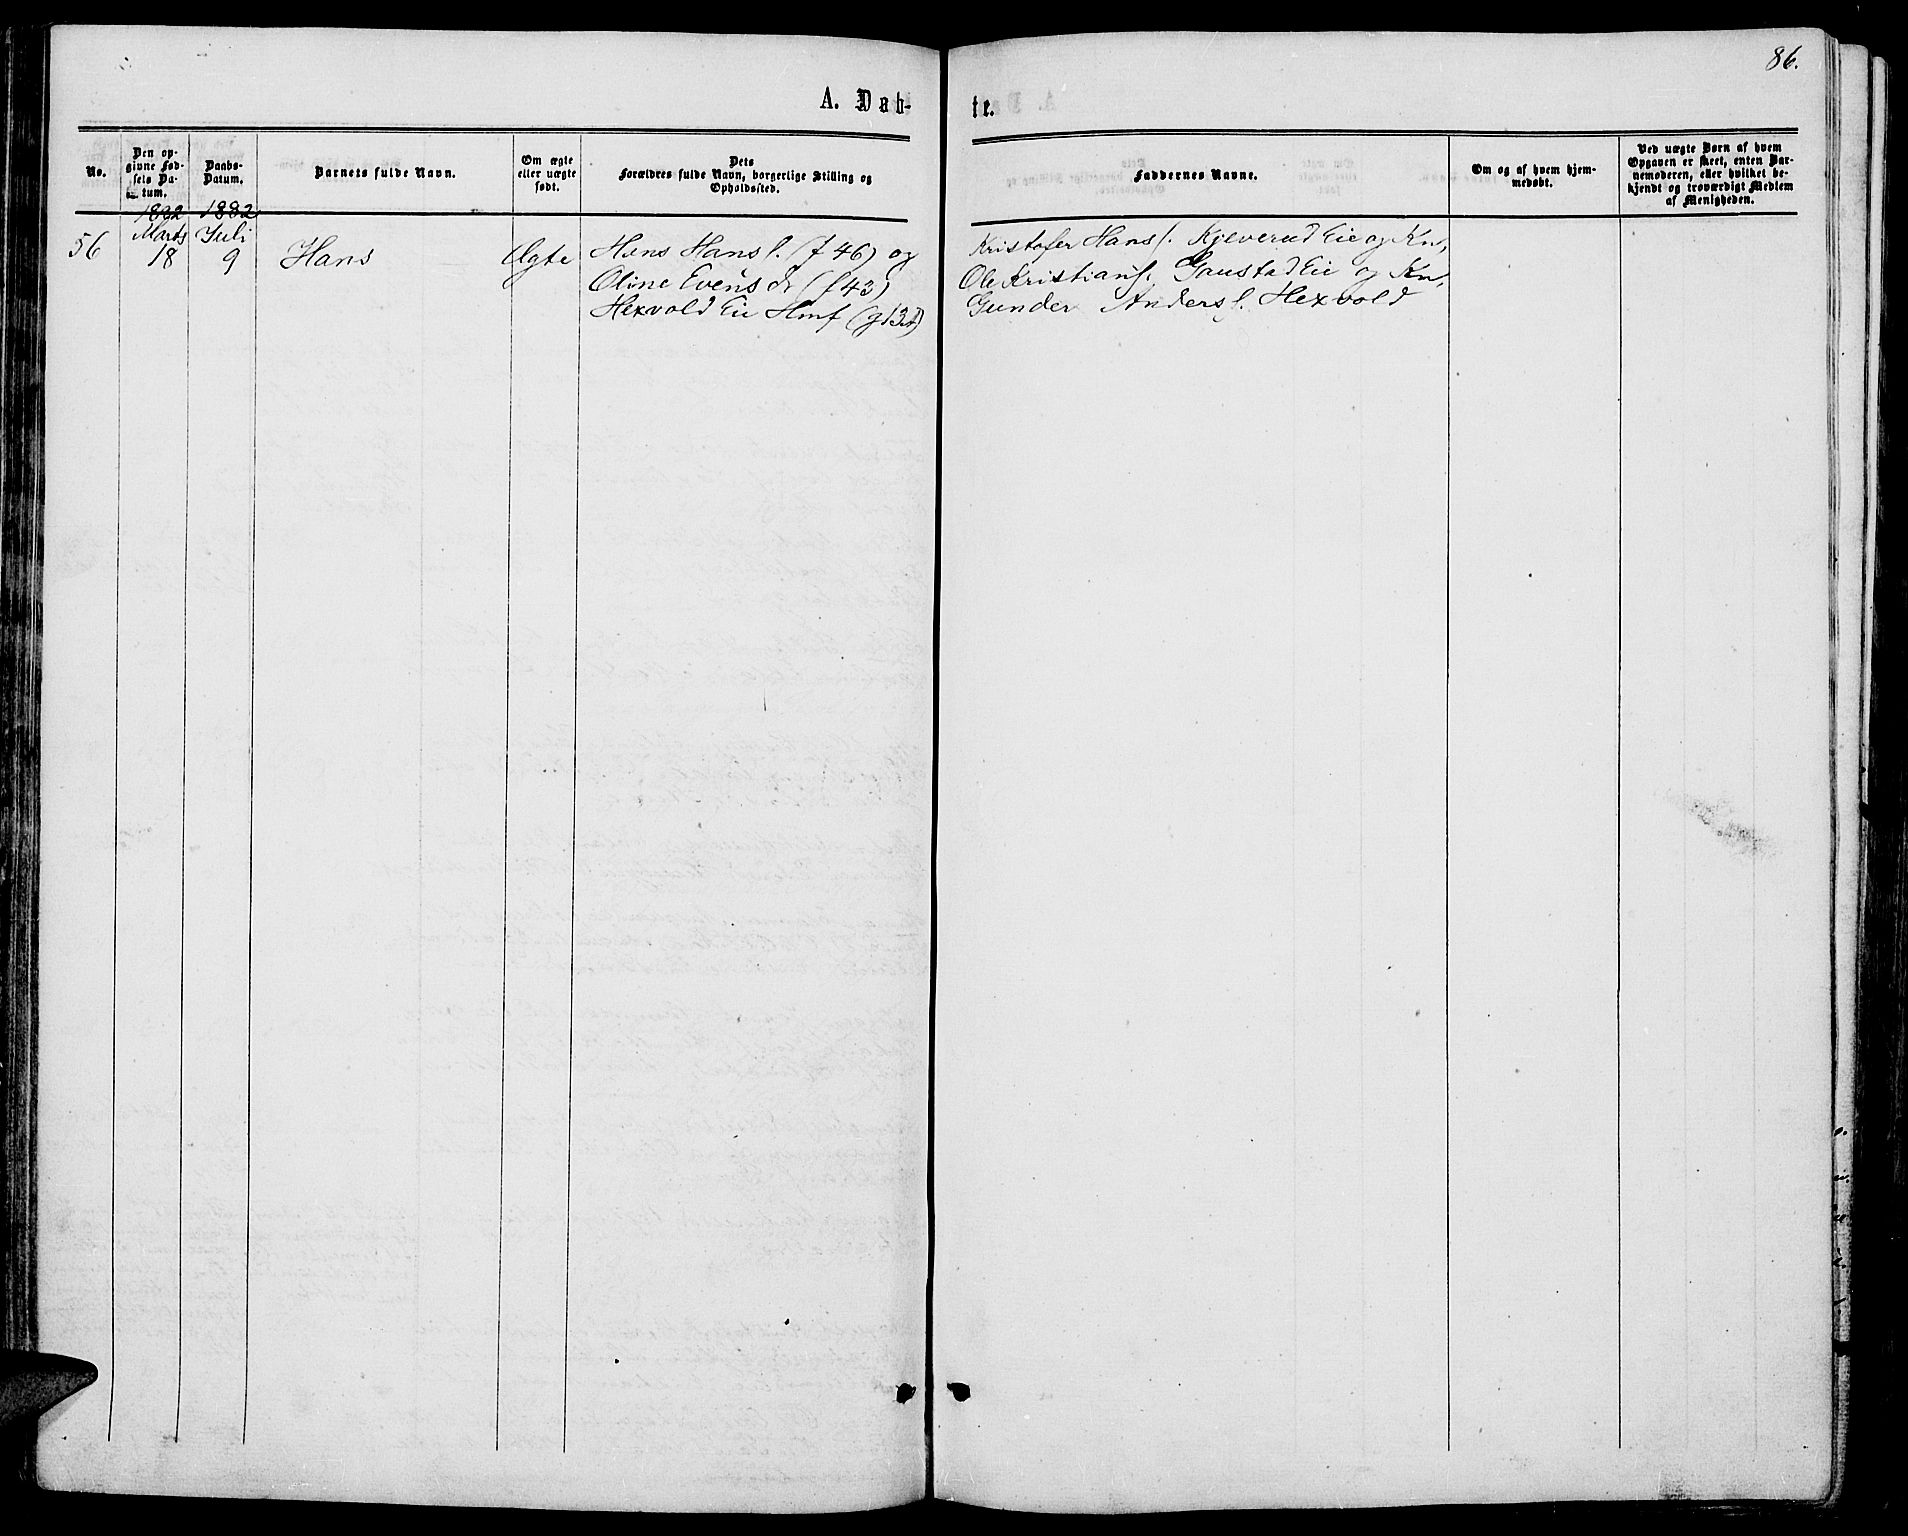 86.
A. Dåb-
te.
No.
Den op-
givne Fød-
sels Da-
tum.
Daabs-
Datum.
Barnets fulde Navn.
Om ægte
eller uægte
født.
Dets
Forældres fulde Navn, borgerlige Stilling og
Opholdssted.
Faddernes Navne.
Om og af hvem hjem-
medøbt.
Ved uægte Børn af hvem
Opgaven er skeet, enten Bar-
nemoderen, eller hvilket be-
kjendt og troværdigt Medlem
af Menigheden.
1882 1882
Marts Juli
56 18 9 Hans Ægte Hans Hans s. (f 46) og
Oline Evens dr (f 43)
Hexvold Eie Hmf
Kristofer Hans s. Kjeverud Eie og Kn,
Ole Kristians. Gaustad Eie og Kn,
Gunder Anders s. Hexvold